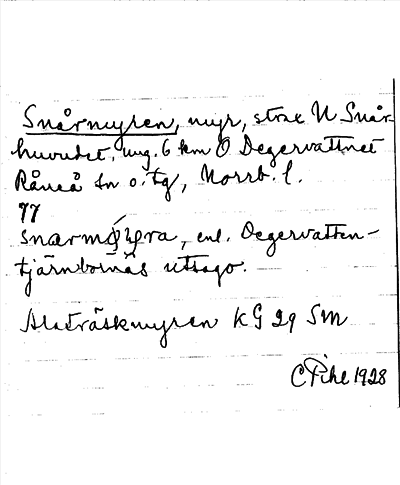 Snårmyren, myr, strax N Snår-
huvudet, ung. 6 km O Degervattnet
Råneå sn o. tg, Norrb. l.
77
enl. Degervatten-
tjärnbornas utsago.
Alaträskmyren KG 29 SM
C Pihl 1928